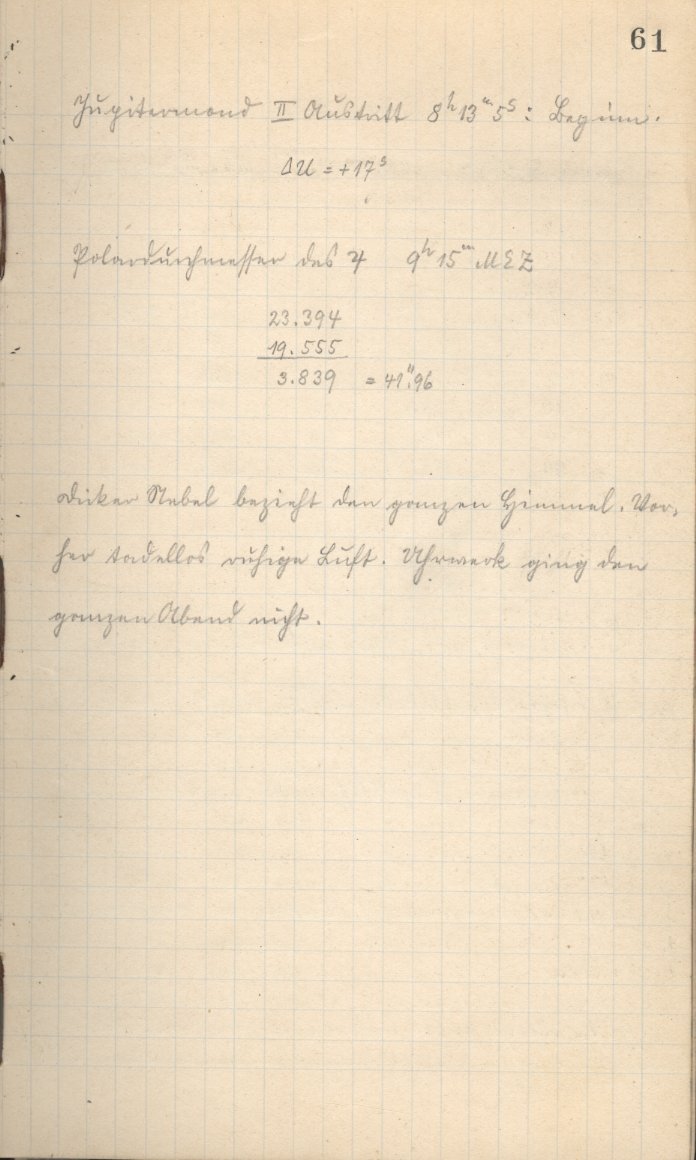 61
Jupitermond II Austritt 8h 13m 5s: Beginn.
ΔU = +17s
Polardurchmesser des ♃ 9h 15m MEZ
23.394
19.555
3.839 = 41".96
Dicker Nebel bezieht den ganzen Himmel. Vor-
her tadellos ruhige Luft. Uhrwerk ging den
ganzen Abend nicht.